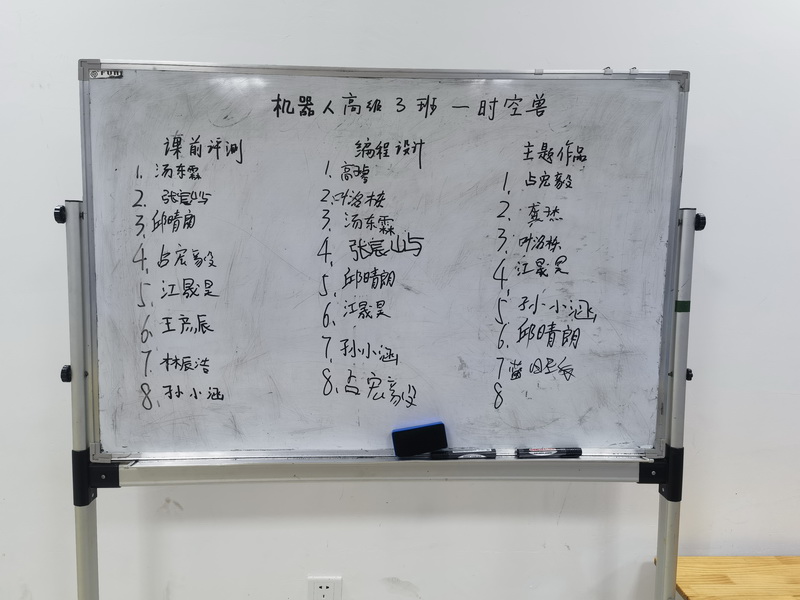 机器人高级3班 一时空兽
课前评测
1.汤东霖
2.张宸屿
3.邱晴朗
4.占宏毅
5.江晟昊
6.王彦辰
7.林辰浩
8.孙小涵
编程设计
1.高
2.叶洺栋
3.汤东霖
4.张宸屿
5.邱晴朗
6.江晟昊
7.孙小涵
8.占宏毅
主题作品
1.占宏毅
2.龚杰
3.叶洺栋
4.江晟昊
5.孙小涵
6.邱晴朗
7
8